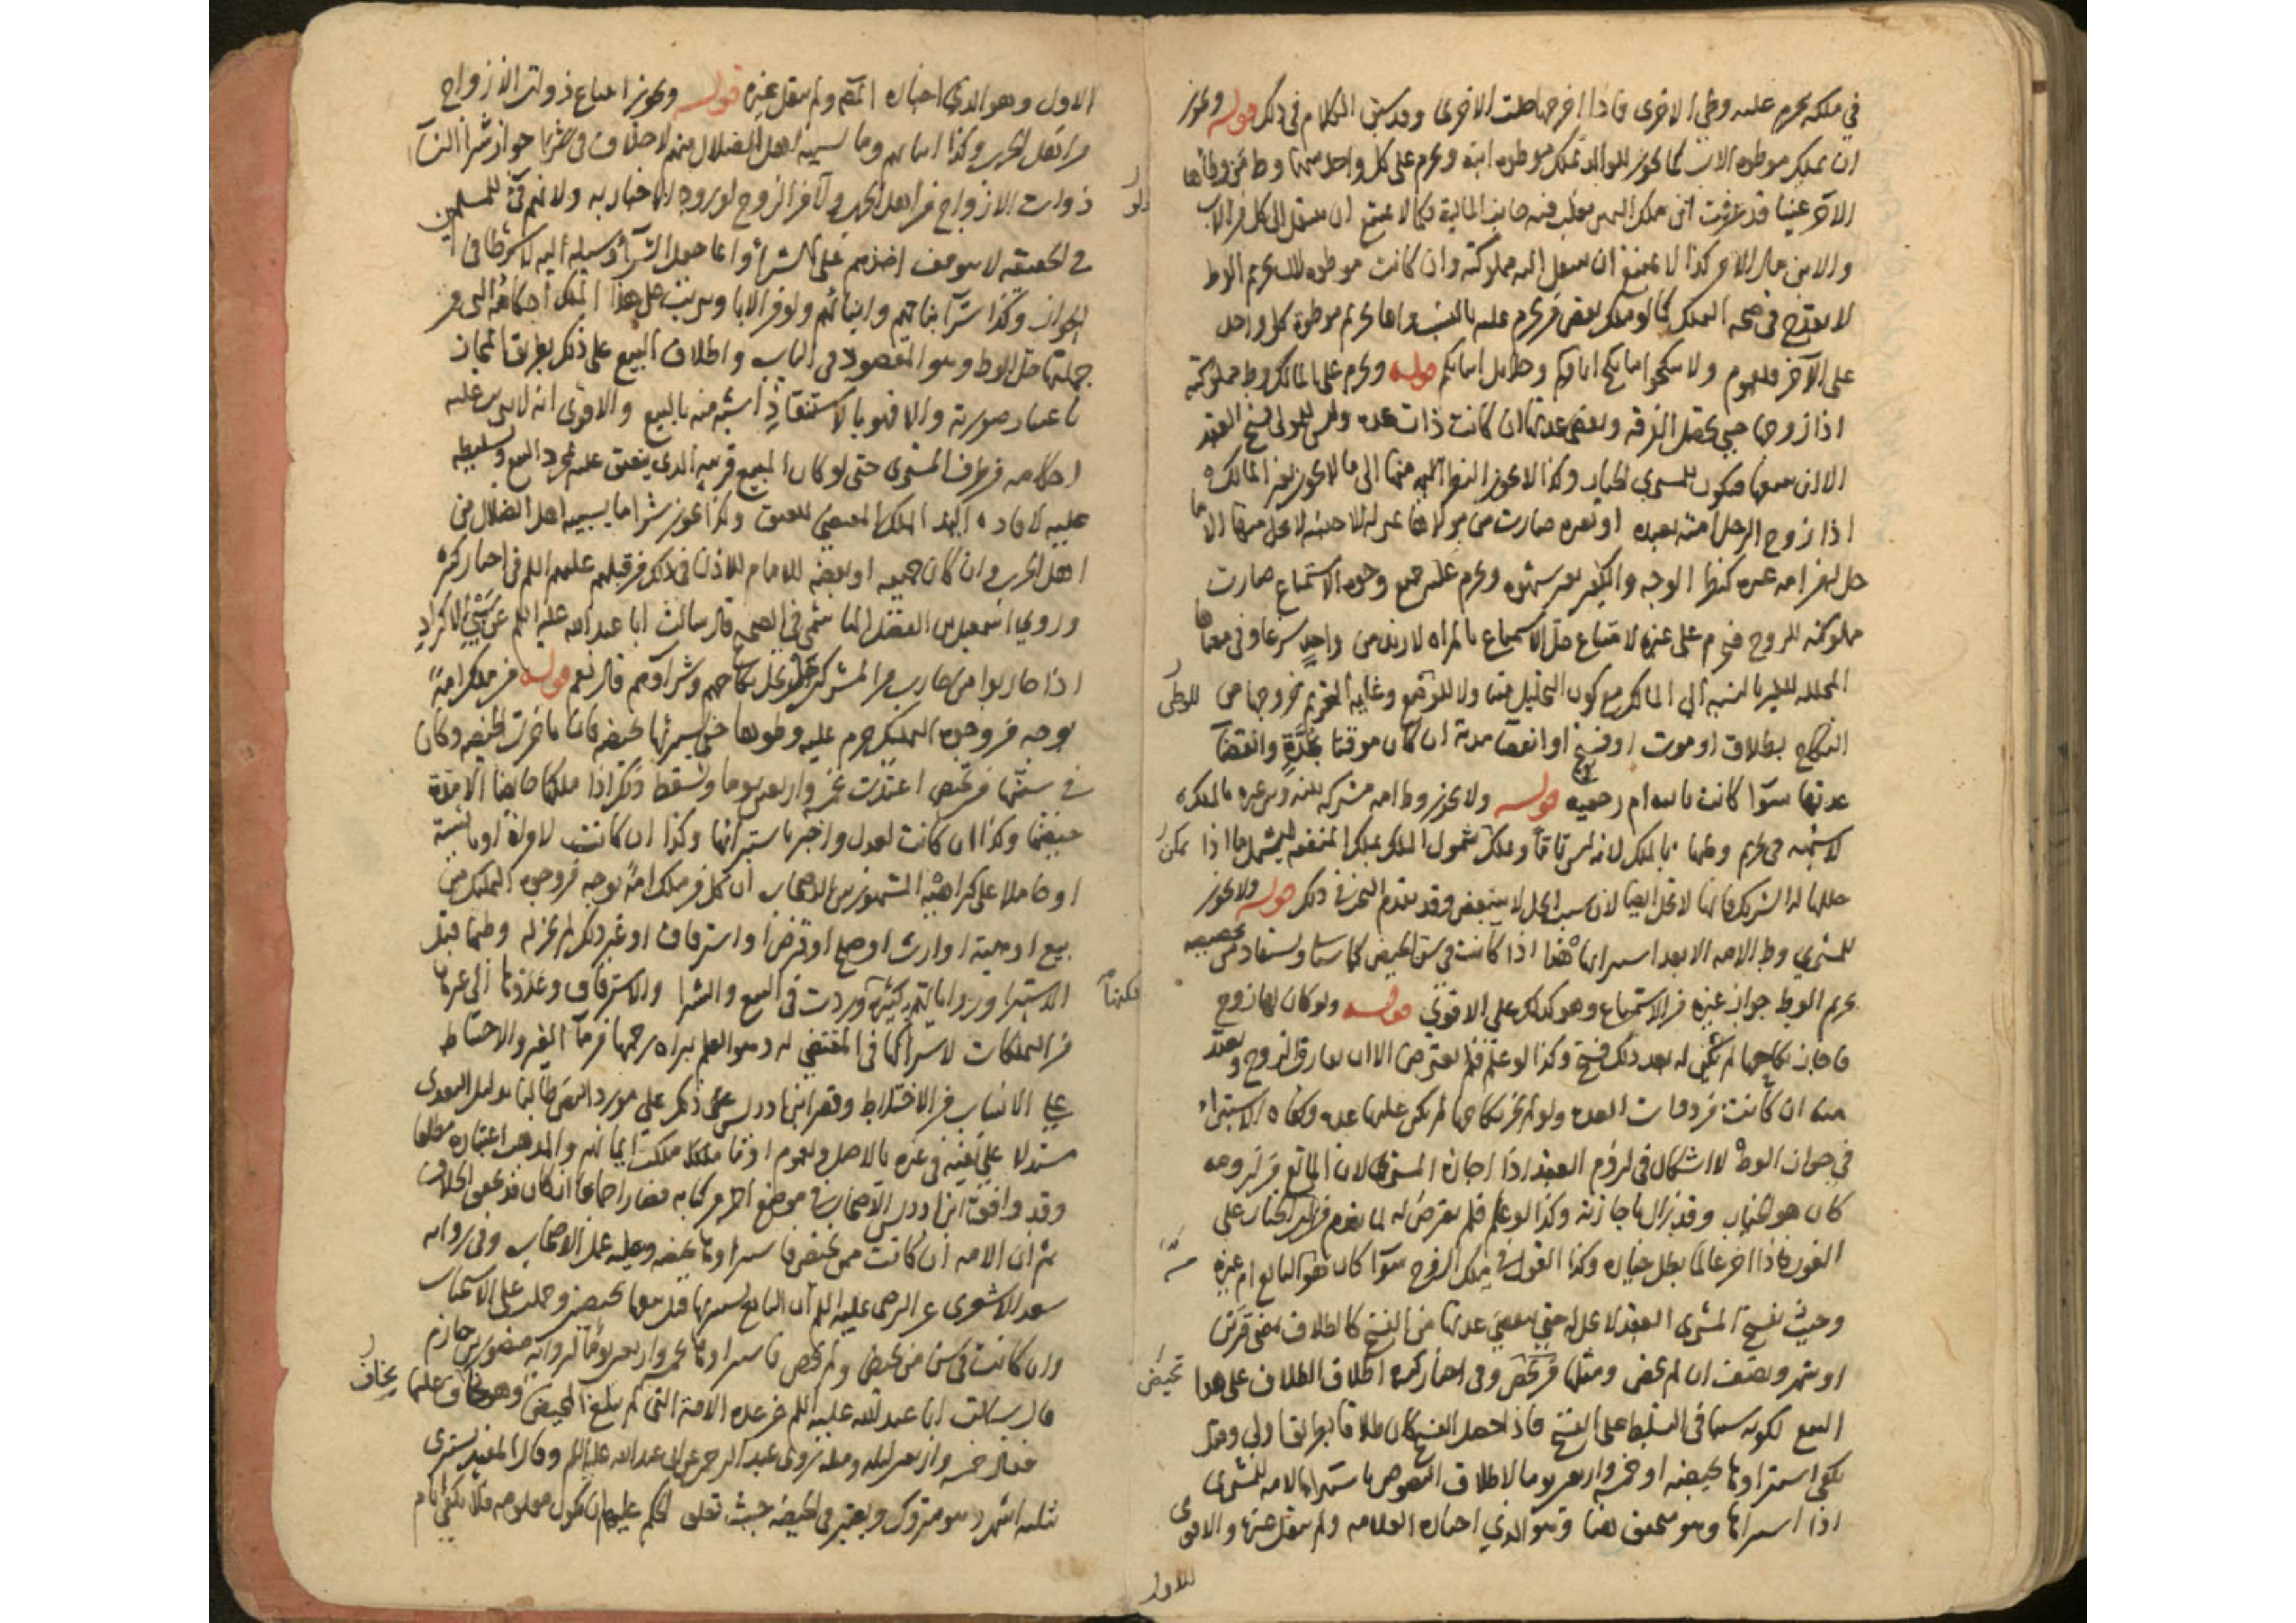 في ملكه يحرم عليه وطي الاخرى فاذا اخرجها حلت الاخرى وقد سبق الكلام في ذلك قوله ويجوز
ان يملك موطوءه الاب كما يجوز للوالد تملك موطوءه ابنه ويحرم على كل واحد منهما وط من وطئها
الآخر عينا قد عرفت ان ملك اليمين يغلب فيه جانب المالية فكما لا يمتنع ان ينتقل الى كل من الاب
والابن مال الآخر كذا لا يمتنع ان ينتقل اليه مملوكته وان كانت موطوءه لان تحريم الوط
لا يقدح في صحه التملك كما لو ملك بعض من يحرم عليه بالنسب وانما يحرم موطوءة كل واحد
على الآخر فلعموم ولا تنكحوا ما نكح اباؤكم وحلايل ابنايكم قوله ويحرم على المالك وط مملوكته
اذا زوجها حتى تحصل الفرقه وتنقضي عدتها ان كانت ذات عده وليس للمولى فسخ العقد
الا ان يبيعها فيكون للمشتري الخيار وكذا لا يجوز النظر اليه منها الى ما لا يجوز لغير المالك
اذا زوج الرجل امته بعبده او بغيره صارت من مولاها بمنزله الاجنبيه لا يحل منها الا ما
حل له من امه غيره كنظر الوجه والكفين بغير شهوه ويحرم عليه جميع وجوه الاستمتاع صارت
مملوكته للزوج فيحرم على غيره لامتناع حل الاستمتاع بالمراه لازيد من واحد شرعا وفي معناها
المحلله للغير بالنسبه الى المالك مع كون التحليل متناولا للوقيع وغايه التحريم خروجها من
للوطى
النكاح بطلاق او موت او فسخ او انقضا مدته ان كان موقتا بمدة وانقضا
عدتها سوا كانت باينه ام رجعيه قوله ولا يجوز وط امه مشتركه بينه وبين غيره بالملك
لا شبهه في تحريم وطيها بالملك لانه ليس تاما وملك شمول الملك لملك المنفعه ليشمل ما اذا
يمكن
حللها له الشريك فانها لا تحل ايضا لان سبب الحل لا يتبعض وقد تقدم البحث في ذلك قوله ولا يجوز
للمشتري وط الامه الا بعد استبرائها هذا اذا كانت في سن الحيض كما سياتي ويستفاد من تخصيصه
تحريم الوط جواز غيره من الاستمتاع وهو كذلك على الاقوى قوله ولو كان لها زوج
فاجاز نكاحها لم يكن له بعد ذلك فسخ وكذا لو علم فلم يعترض الا ان يفارق الزوج وتعتد
منه ان كانت من ذوات العده ولو لم يجز نكاحها لم يكن عليها عده وكفاه الاستبراء
في جواز الوط لا اشكال في لزوم العقد اذا اجازه المشتري لان المانع من لزومه
كان هو الخيار وقد زال باجازته وكذا لو علم فلم يعترض له لما تقدم من ان الخيار على
الفور فاذا اخر عالما بطل خياره وكذا القول في ملك الزوج سوا كان هو البايع ام غيره
وحيث يفسخ المشتري العقد لا تحل له حتى تنقضي عدتها من الفسخ كالطلاق بمضي قرئين
او شهر ونصف ان لم تحض ومثلها من تحيض وفي اخبار كثيره اطلاق الطلاق على هذا
تحيض
البيع لكونه سببا في التسلط على الفسخ فاذا حصل الفسخ كان طلاقا بطريق اولى وهل
يكفي استبراؤها بحيضه او خمسه واربعين يوما لاطلاق النصوص باستبراء الامه للمشتري
اذا استبراها وهو متحقق هنا وهو الذي اختاره العلامه ولم ينقل غيره والاقوى
للاول
الاول وهو الذي اختاره المصنف ولم ينقل غيره قوله ويجوز ابتياع ذوات الازواج
من اهل الحرب وكذا ابنائهم وما يسبيه اهل الضلال منهم لا خلاف في جواز شرا النسا
ذوات الازواج من اهل الحرب ولو من الزوج لورود الاخبار به ولانهم فئ للمسلمين
في الحقيقه لا يتوقف اخذهم على الشراء وانما جعل الشراء وسيله اليه لا شرطا في
الجواز وكذا شراء بناتهم وابنائهم ولو من الابا ويترتب على هذا الملك احكامه التي من
جملتها حل الوط وهو المقصود في الباب واطلاق البيع على ذلك بطريق المجاز
باعتبار صورته والا فهو بالاستنقاذ اشبه منه بالبيع والاقوى انه لا يترتب عليه
احكامه من طرف المشتري حتى لو كان المبيع قريبه الذي ينعتق عليه بمجرد البيع وتسليطه
عليه لافاده اليد الملك المقتضي للعتق وكذا يجوز شرا ما يسبيه اهل الضلال من
اهل الحرب وان كان جميعه او بعضه للامام للاذن في ذلك من قبلهم عليهم السلام في اخبار كثيره
وروى اسمعيل بن الفضل الهاشمي في الصحيح قال سالت ابا عبد الله عليه السلم عن سبي الاكراد
اذا حاربوا من حارب من المشركين هل يحل نكاحهم وشراؤهم قال نعم قوله من ملك امة
بوجه من وجوه التمليك حرم عليه وطوها حتى يستبرئها بحيضه فان تاخرت الحيضه وكان
في سنها من تحيض اعتدت بخمسه واربعين يوما ويسقط ذلك اذا ملكها حايضا الا مدة
حيضها وكذا ان كانت لعدل واخبر باستبرائها وكذا ان كانت لامراة او يائسة
او حاملا على كراهية المشهور بين الاصحاب ان كل من ملك امة بوجه من وجوه التملك من
بيع او هبة او ارث او صلح او قرض او استرقاق او غير ذلك لم يجز له وطيها قبل
الاستبرا وروايات به كثيرة وردت في البيع والشرا والاسترقاق وعديت الى غيرها
من التملكات لاشتراكها في المقتضي له وهو العلم ببراءه رحمها من ماء الغير والاحتياط
على الانساب من الاختلاط وقصر ابن ادريس ذلك على مورد النص مطالبا بدليل التعدي
مستدلا على نفيه في غيره بالاصل وعموم او ما ملكت ايمانهم والمذهب اعتباره مطلقا
وقد وافق ابن ادريس الاصحاب في موضع اخر من كتابه فصار اجماعا ان كان قد تحقق الخلاف
ثم ان الامه ان كانت ممن تحيض فاستبراؤها بحيضه وعليه عمل الاصحاب وفي روايه
سعد الاشعري عن الرضا عليه السلم ان البايع يستبرئها قبل بيعها بحيضتين وحملت على الاستحباب
وان كانت في سن من تحيض ولم تحض فاستبراؤها بخمسه واربعين يوما لروايه منصور بن حازم
قال سالت ابا عبد الله عليه السلم عن عده الامة التي لم تبلغ المحيض وهو يخاف عليها
يخاف
فقال خمسه واربعين ليله ومثله روى عبد الرحمن عن ابي عبد الله عليه السلم وقال المفيد تستبرى
بثلثه اشهر وهو متروك ويعتبر في الحيضه حيث تعلق الحكم عليها ان تكون معلومه فلا يكفي ايام